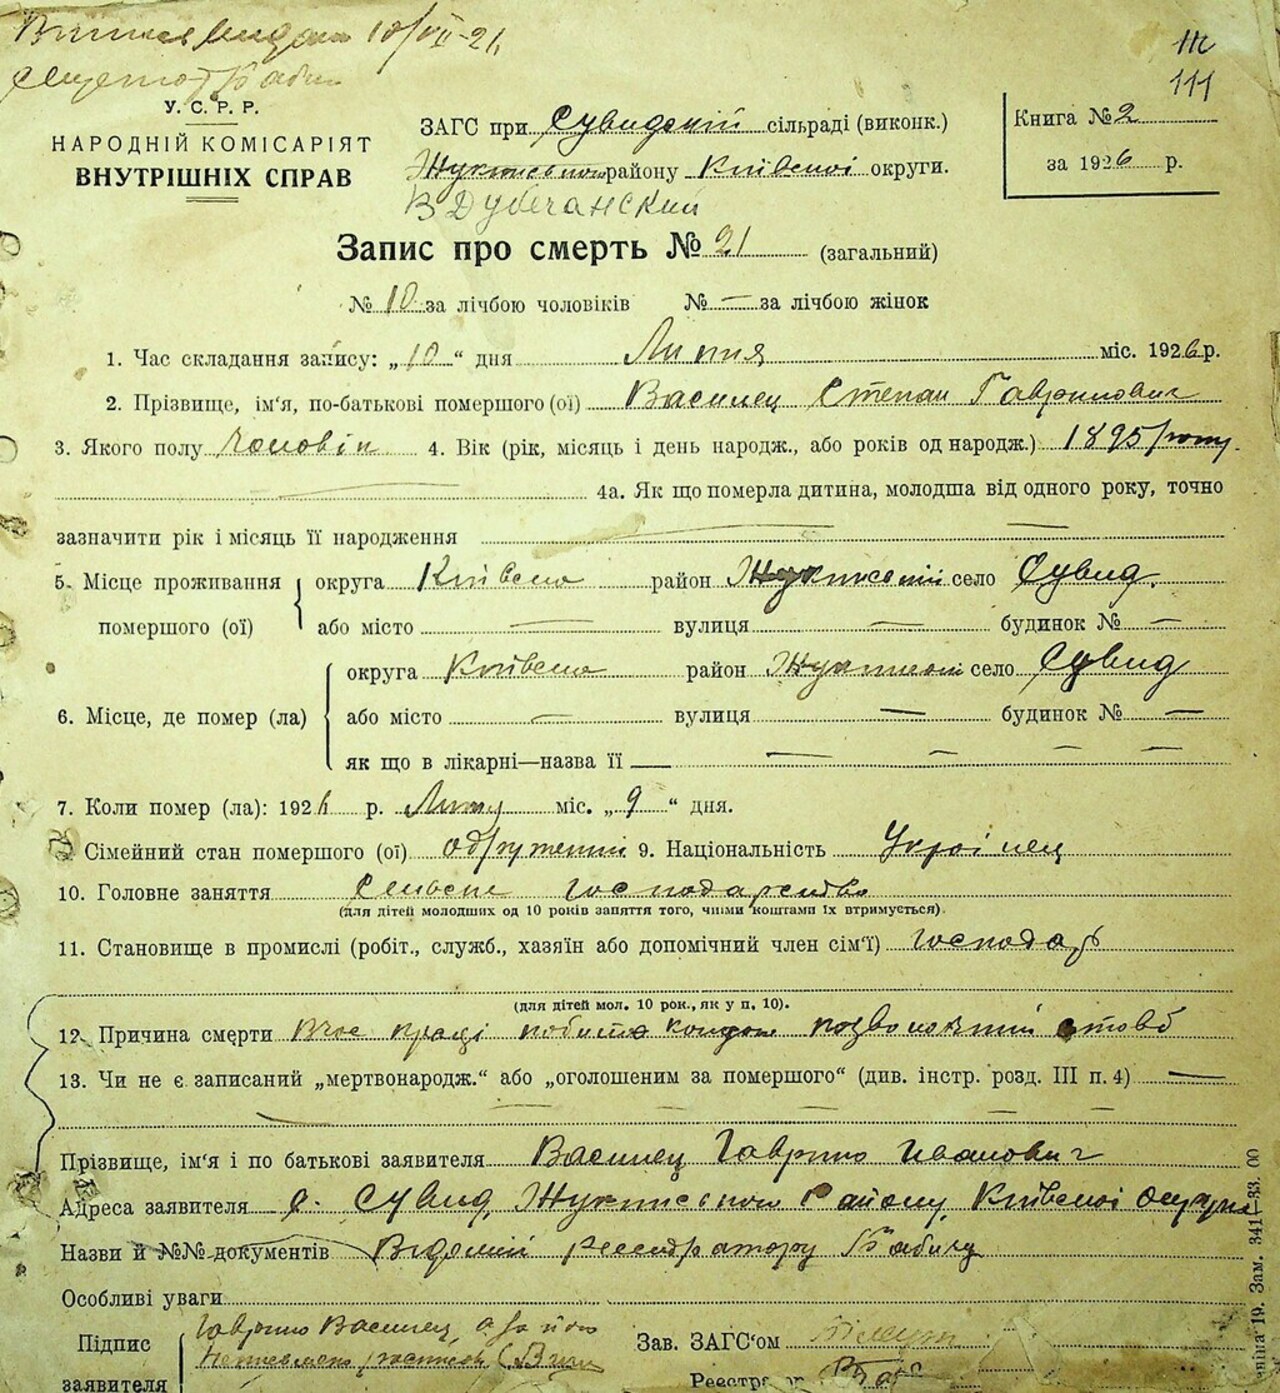 Витяг видан 10/VII-21
Бабич
111
111
У. С. Р. Р.
НАРОДНІЙ КОМІСАРІЯТ
ВНУТРІШНІХ СПРАВ
ЗАГС при Сувидській сільраді (виконк.)
Жукинського району Київської округи.
В Дубечанский
Книга № 2
за 1926 р.
Запис про смерть № 21 (загальний)
№ 10 за лічбою чоловіків № — за лічбою жінок
1. Час складання запису: „10“ дня Липня міс. 1926 р.
2. Прізвище, ім'я, по-батькові помершого (ої) Василец Степан Гаврилович
3. Якого полу Чоловік 4. Вік (рік, місяць і день народж., або років од народж.) 1895 року.
4а. Як що померла дитина, молодша від одного року, точно
зазначити рік і місяць її народження —
5. Місце проживання помершого (ої) округа Київськ район Жукинський село Сувид.
або місто — вулиця — будинок № —
6. Місце, де помер (ла) округа Київська район Жукинськ село Сувид
або місто — вулиця — будинок № —
як що в лікарні—назва її — — — —
7. Коли помер (ла): 1926 р. Липня міс. „9“ дня.
Сімейний стан помершого (ої) одружений 9. Національність Українец
10. Головне заняття Сільське господарство
(для дітей молодших од 10 років заняття того, чиїми коштами їх втримується)
11. Становище в промислі (робіт., служб., хазяїн або допомічний член сім'ї) господарь
(для дітей мол. 10 рок., як у п. 10).
12. Причина смерти в час праці побито стовб
13. Чи не є записаний „мертвонародж.“ або „оголошеним за помершого“ (див. інстр. розд. III п. 4) —
Прізвище, ім'я і по батькові заявителя Василец Гаврило Иванович
Адреса заявителя с. Сувид, Жукинського Району, Київської Округи
Назви й №№ документів Відомий реєстратору Бабичу
Особливі уваги
Підпис заявителя Гаврило Василец, а за його неписьмен. расписся
Зав. ЗАГС'ом
Реєстратор
19. Зам. 341—83. 00